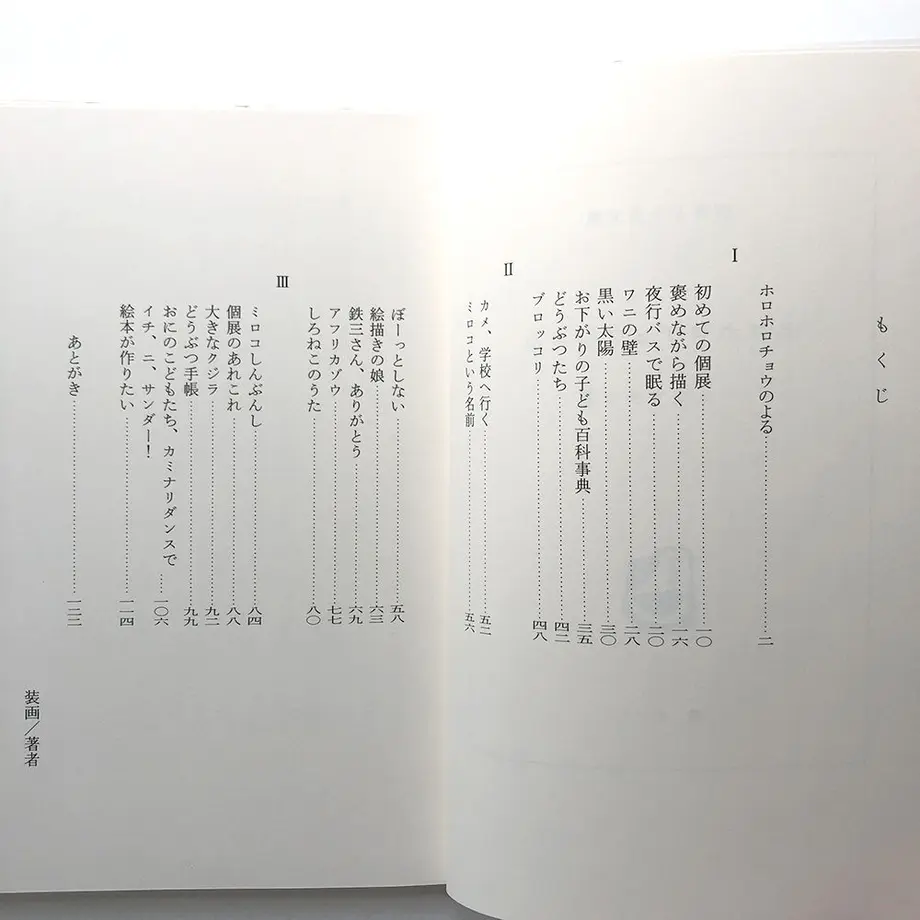 もくじ
ホロホロチョウのよる……二
Ⅰ
初めての個展……一〇
褒めながら描く……一六
夜行バスで眠る……二〇
ワニの壁……二八
黒い太陽……三〇
お下がりの子ども百科事典……三五
どうぶつたち……四二
ブロッコリ……四八
Ⅱ
カメ、学校へ行く……五二
ミロコという名前……五六
ぼーっとしない……五八
絵描きの娘……六三
鉄三さん、ありがとう……六九
アフリカゾウ……七七
しろねこのうた……八〇
Ⅲ
ミロコしんぶんし……八四
個展のあれこれ……八八
大きなクジラ……九三
どうぶつ手帳……九九
おにのこどもたち、カミナリダンスで
イチ、ニ、サンダー！……一〇六
絵本が作りたい……一一四
あとがき……一二二
装画／著者